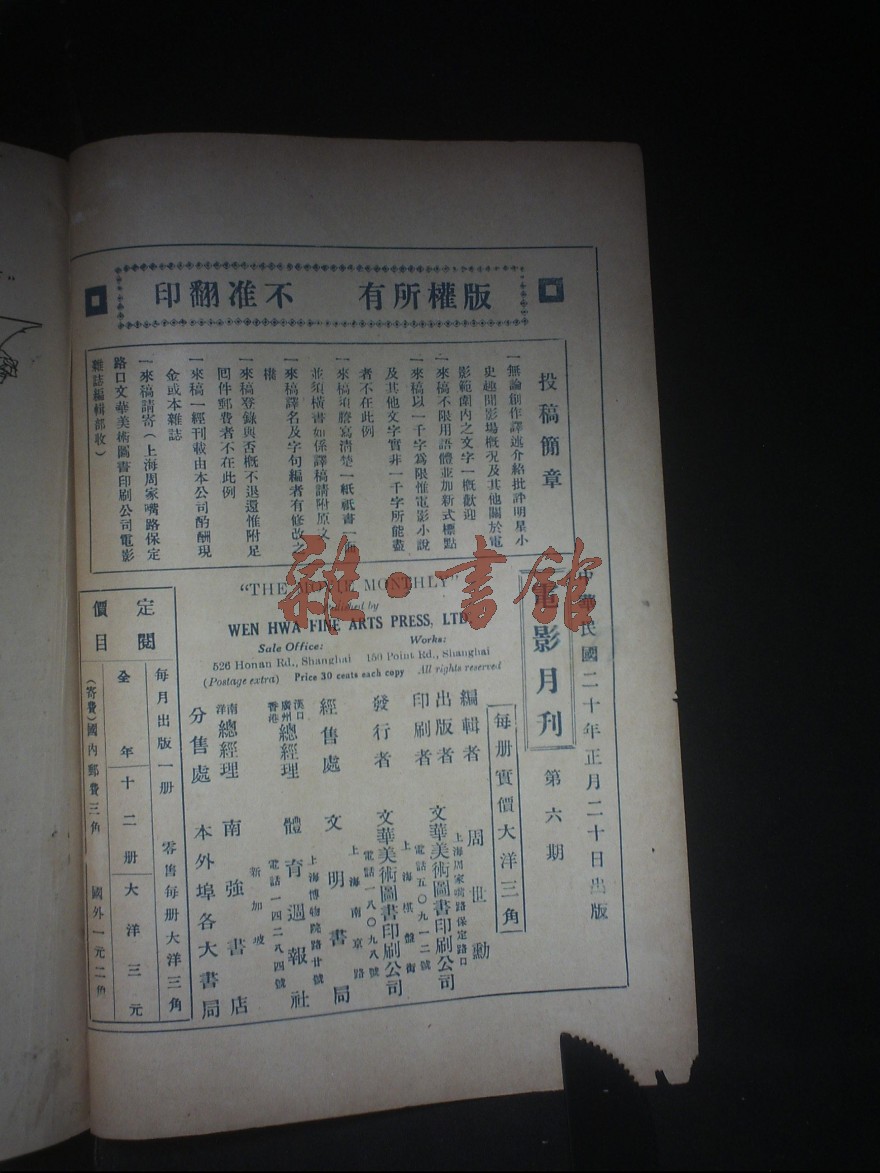 版權所有　不准翻印
投稿簡章
一無論創作譯述介紹批評明星小
史趣聞影場概况及其他關於電
影範圍內之文字一概歡迎
一來稿不限用語體並加新式標點
一來稿以一千字爲限惟電影小說
及其他文字實非一千字所能盡
者不在此例
一來稿須謄寫清楚一紙祇書一面
並須橫書如係譯稿請附原文
一來稿譯名及字句編者有修改之
權
一來稿登錄與否概不退還惟附足
囘件郵費者不在此例
一來稿一經刊載由本公司酌酬現
金或本雜誌
一來稿請寄（上海周家嘴路保定
路口文華美術圖書印刷公司電影
雜誌編輯部收）
中華民國二十年正月二十日出版
電影月刊　第六期
每册實價大洋三角
"THE MOVIE MONTHLY"
Published by
WEN HWA FINE ARTS PRESS, LTD.
Sale Office: Works:
526 Honan Rd., Shanghai 150 Point Rd., Shanghai
(Postage extra) Price 30 cents each copy All rights reserved
編輯者　周世勳
出版者　文華美術圖書印刷公司
上海周家嘴路保定路口
電話五〇九一二號
印刷者
發行者　文華美術圖書印刷公司
上海棋盤街
電話一八〇九八號
經售處　文明書局
上海南京路
漢口廣州香港總經理　體育週報社
上海博物院路廿號
電話一四二八四號
南洋總經理　南強書店
新加坡
分售處　本外埠各大書局
定閱價目
每月出版一册　零售每册大洋三角
全年十二册大洋三元
（寄費）國內郵費三角　國外一元二角
雜·書館